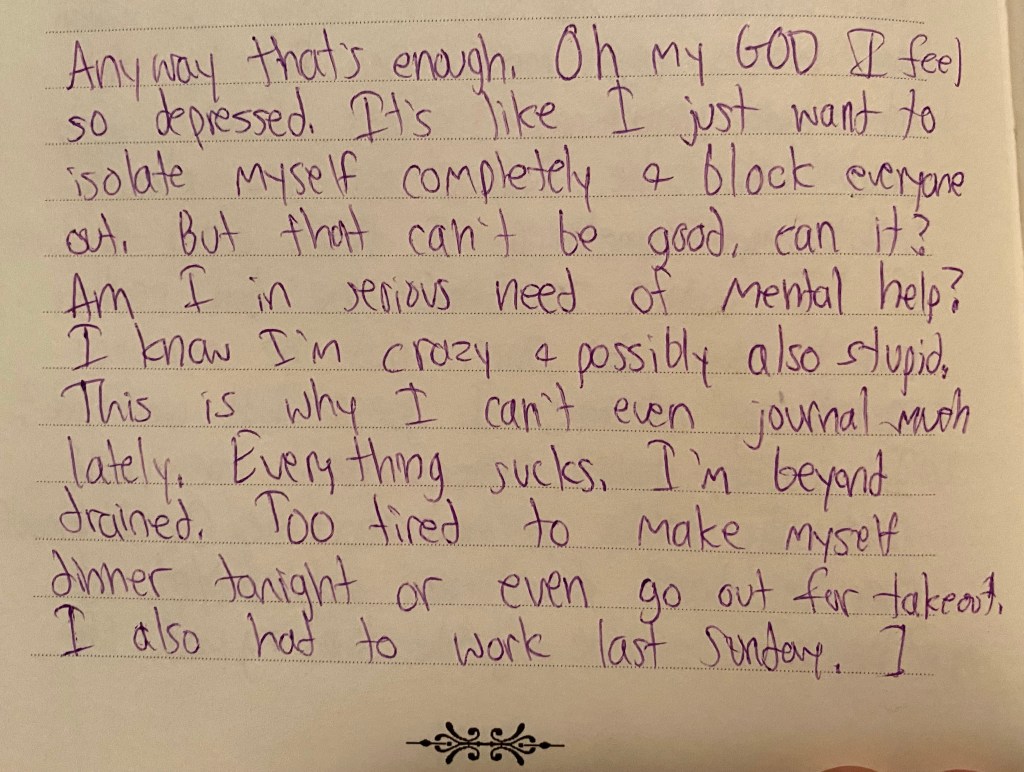 Anyway that's enough. Oh my GOD I feel
so depressed. It's like I just want to
isolate myself completely & block everyone
out. But that can't be good, can it?
Am I in serious need of mental help?
I know I'm crazy & possibly also stupid.
This is why I can't even journal much
lately. Everything sucks. I'm beyond
drained. Too tired to make myself
dinner tonight or even go out for takeout.
I also had to work last Sunday. I